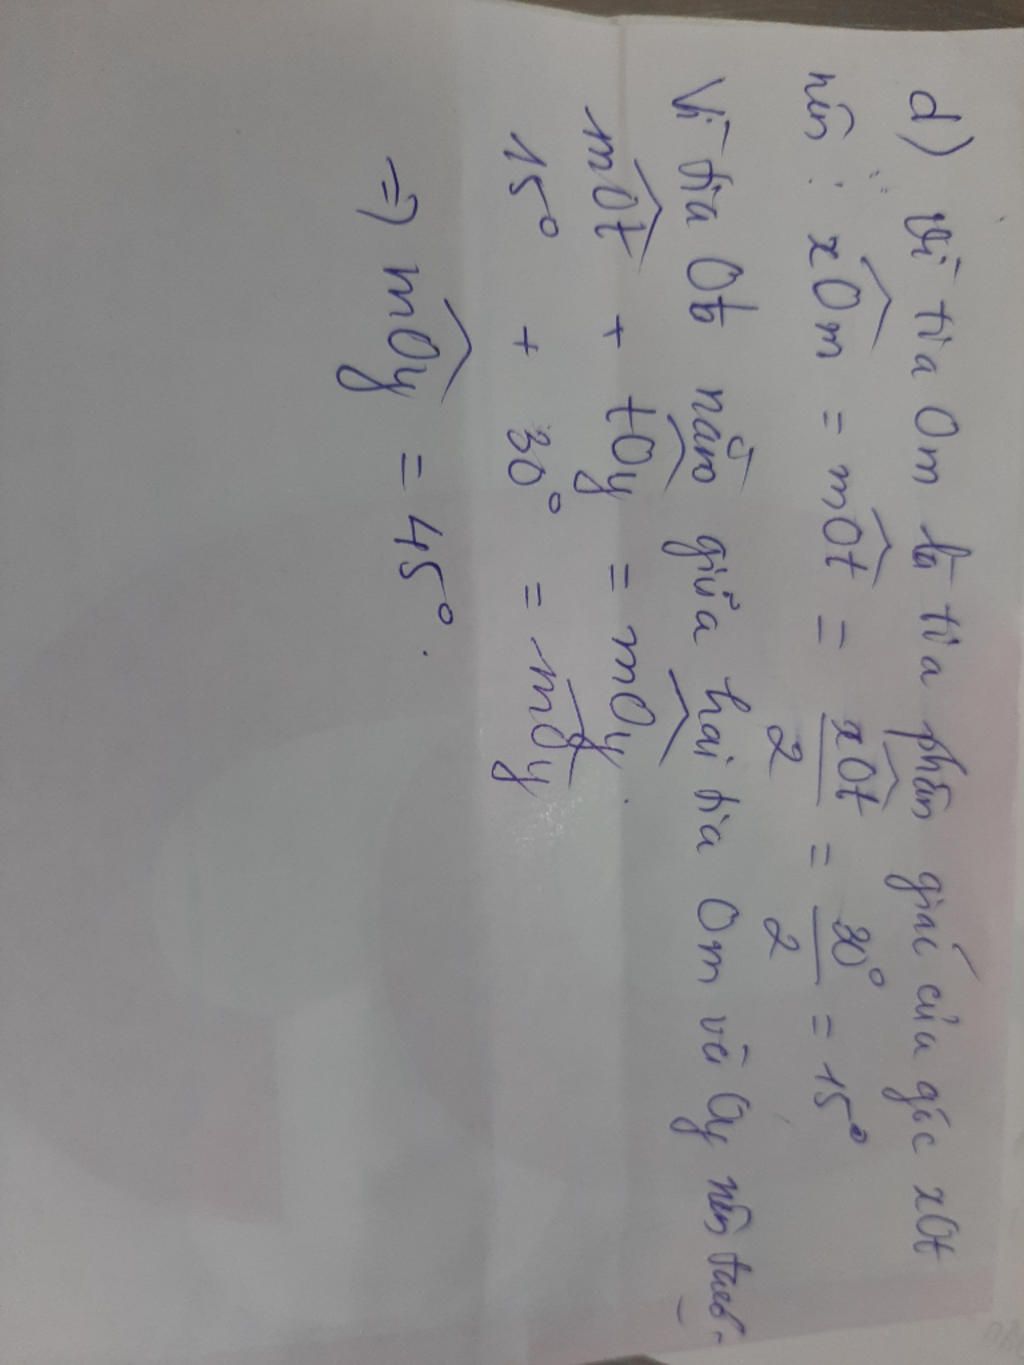 d) Vì tia Om là tia phân giác của góc xOt
nên : xOm = mOt = xOt/2 = 30°/2 = 15°
Vì tia Ot nằm giữa hai tia Om và Oy nên
mOt + tOy = mOy.
15° + 30° = mOy
=> mOy = 45°.